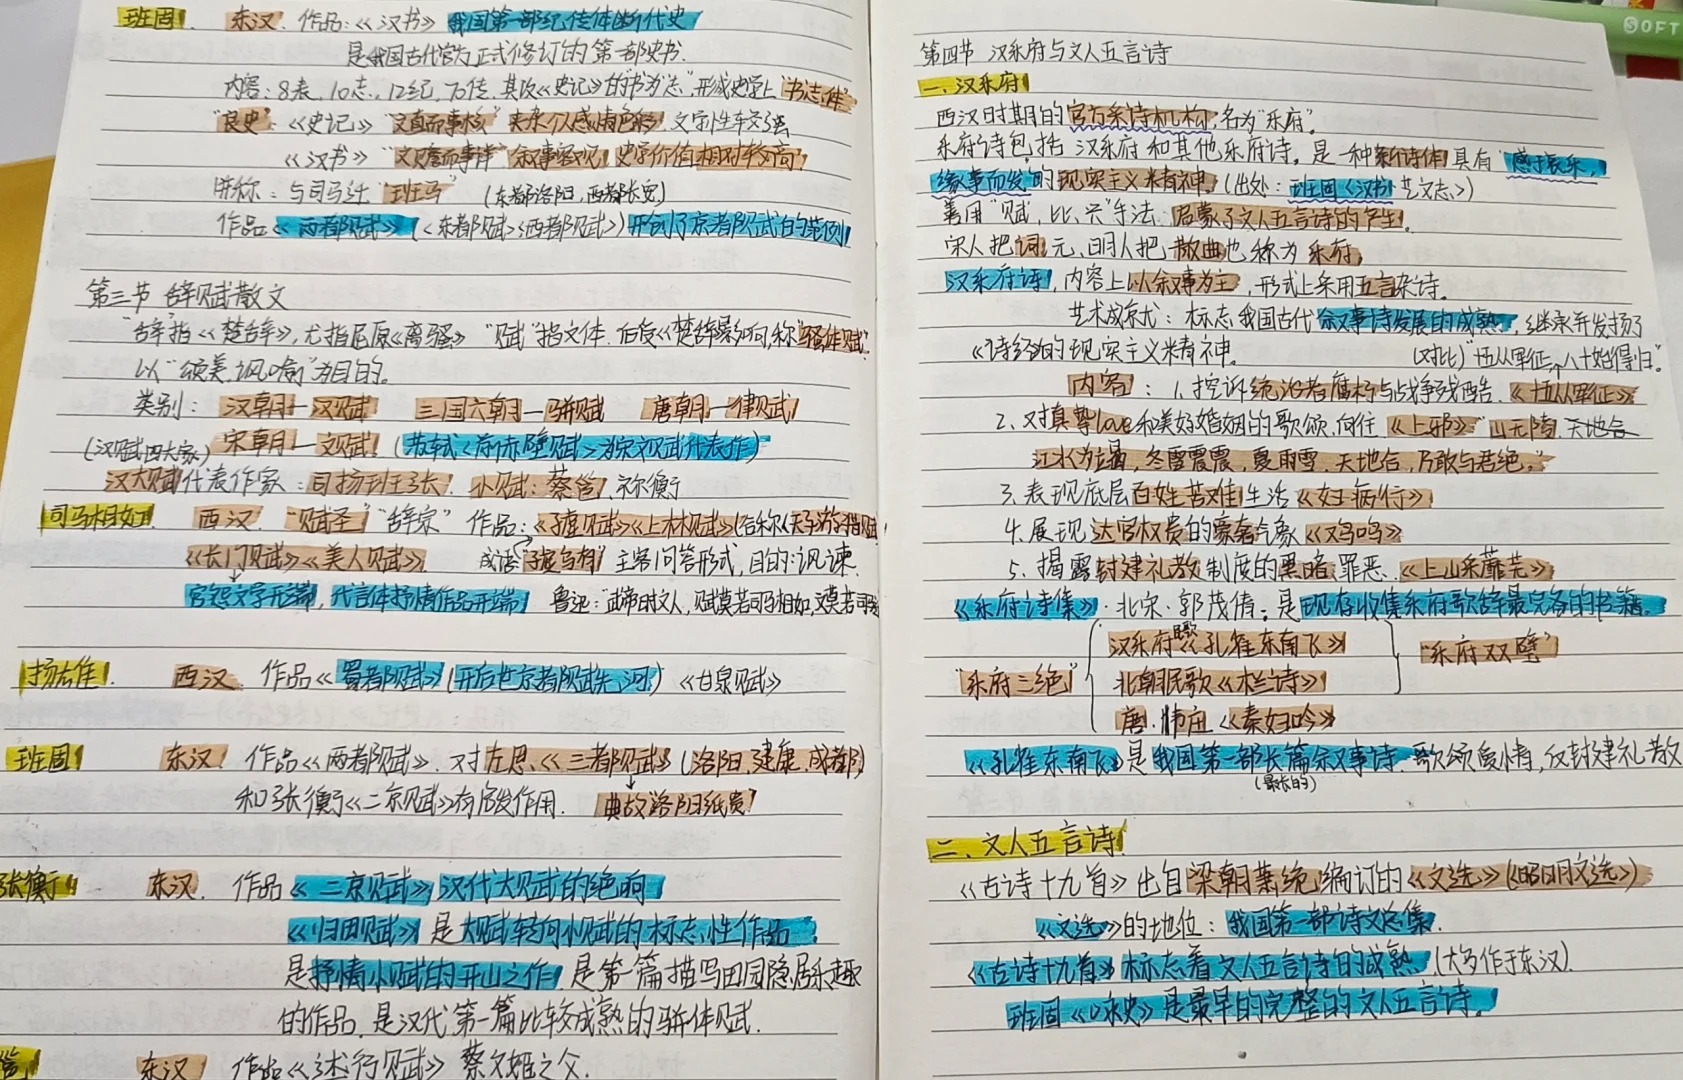 班固 东汉. 作品:《汉书》 我国第一部纪传体断代史
是我国古代官方正式修订的第一部史书.
内容: 8表. 10志. 12纪. 70传. 其改《史记》的"书"为"志", 形成史学上"书志体"
"良史": 《史记》 "文直而事核" 夹杂个人感情色彩, 文学性较强
《汉书》 "文赡而事详" 叙事客观, 史学价值相对较高
并称: 与司马迁 "班马" (东都洛阳, 西都长安)
作品《两都赋》(《东都赋》《西都赋》)开创了京都赋的范例
第三节 辞赋散文
"辞"指《楚辞》, 尤指屈原《离骚》 "赋"指文体. 后受《楚辞》影响, 称"骚体赋".
以"颂美, 讽喻"为目的.
类别: 汉朝—汉赋 三国六朝—骈赋 唐朝—律赋
(汉赋四大家) 宋朝—文赋 (苏轼《前赤壁赋》为宋文赋代表作)
汉大赋代表作家: 司扬班张. 小赋: 蔡邕, 祢衡
司马相如 西汉. "赋圣" "辞宗" 作品:《子虚赋》《上林赋》(后称《天子游猎赋
《长门赋》《美人赋》 成语"子虚乌有" 主客问答形式, 目的: 讽谏.
宫怨文学开端, 代言体抒情作品开端 鲁迅:"武帝时文人, 赋莫若司马相如, 文莫若司马
扬雄. 西汉 作品《蜀都赋》(开后世京都赋先河) 《甘泉赋》
班固 东汉 作品《两都赋》. 对左思《三都赋》(洛阳, 建康, 成都)
和张衡《二京赋》有启发作用. 典故洛阳纸贵
张衡 东汉. 作品《二京赋》, 汉代大赋的绝响
《归田赋》是大赋转向小赋的标志性作品
是抒情小赋的开山之作, 是第一篇描写田园隐居乐趣
的作品. 是汉代第一篇比较成熟的骈体赋.
邕 东汉 作品《述行赋》 蔡文姬之父.
第四节 汉乐府与文人五言诗
一. 汉乐府
西汉时期的官方采诗机构, 名为"乐府".
乐府诗包括 汉乐府和其他乐府诗. 是一种新诗体 具有"感于哀乐,
缘事而发"的现实主义精神. (出处: 班固《汉书·艺文志》)
善用"赋, 比, 兴"手法. 启蒙了文人五言诗的产生.
宋人把词, 元、明人把散曲也称为乐府,
汉乐府诗, 内容上以叙事为主, 形式上采用五言杂诗.
艺术成就: 标志我国古代叙事诗发展的成熟, 继承并发扬了
《诗经》的现实主义精神. (对比)"十五从军征, 八十始得归".
内容: 1. 控诉统治者腐朽与战争残酷. 《十五从军征》
2. 对真挚love和美好婚姻的歌颂, 向往《上邪》"山无陵, 天地合
江水为竭, 冬雷震震, 夏雨雪. 天地合, 乃敢与君绝."
3. 表现底层百姓苦难生活《妇病行》
4. 展现达官权贵的豪奢气象《鸡鸣》
5. 揭露封建礼教制度的黑暗罪恶. 《上山采蘼芜》
《乐府诗集》· 北宋·郭茂倩. 是现存收集乐府歌辞最完备的书籍.
汉乐府民歌《孔雀东南飞》
"乐府三绝" 北朝民歌《木兰诗》 "乐府双璧"
唐. 韦庄《秦妇吟》
《孔雀东南飞》是我国第一部长篇叙事诗. 歌颂爱情, 反封建礼教
(最长的)
二. 文人五言诗
《古诗十九首》出自梁朝萧统编订的《文选》(《昭明文选》)
《文选》的地位: 我国第一部诗文总集.
《古诗十九首》标志着文人五言诗的成熟. (大多作于东汉).
班固《咏史》是最早的完整的文人五言诗.
SOFT